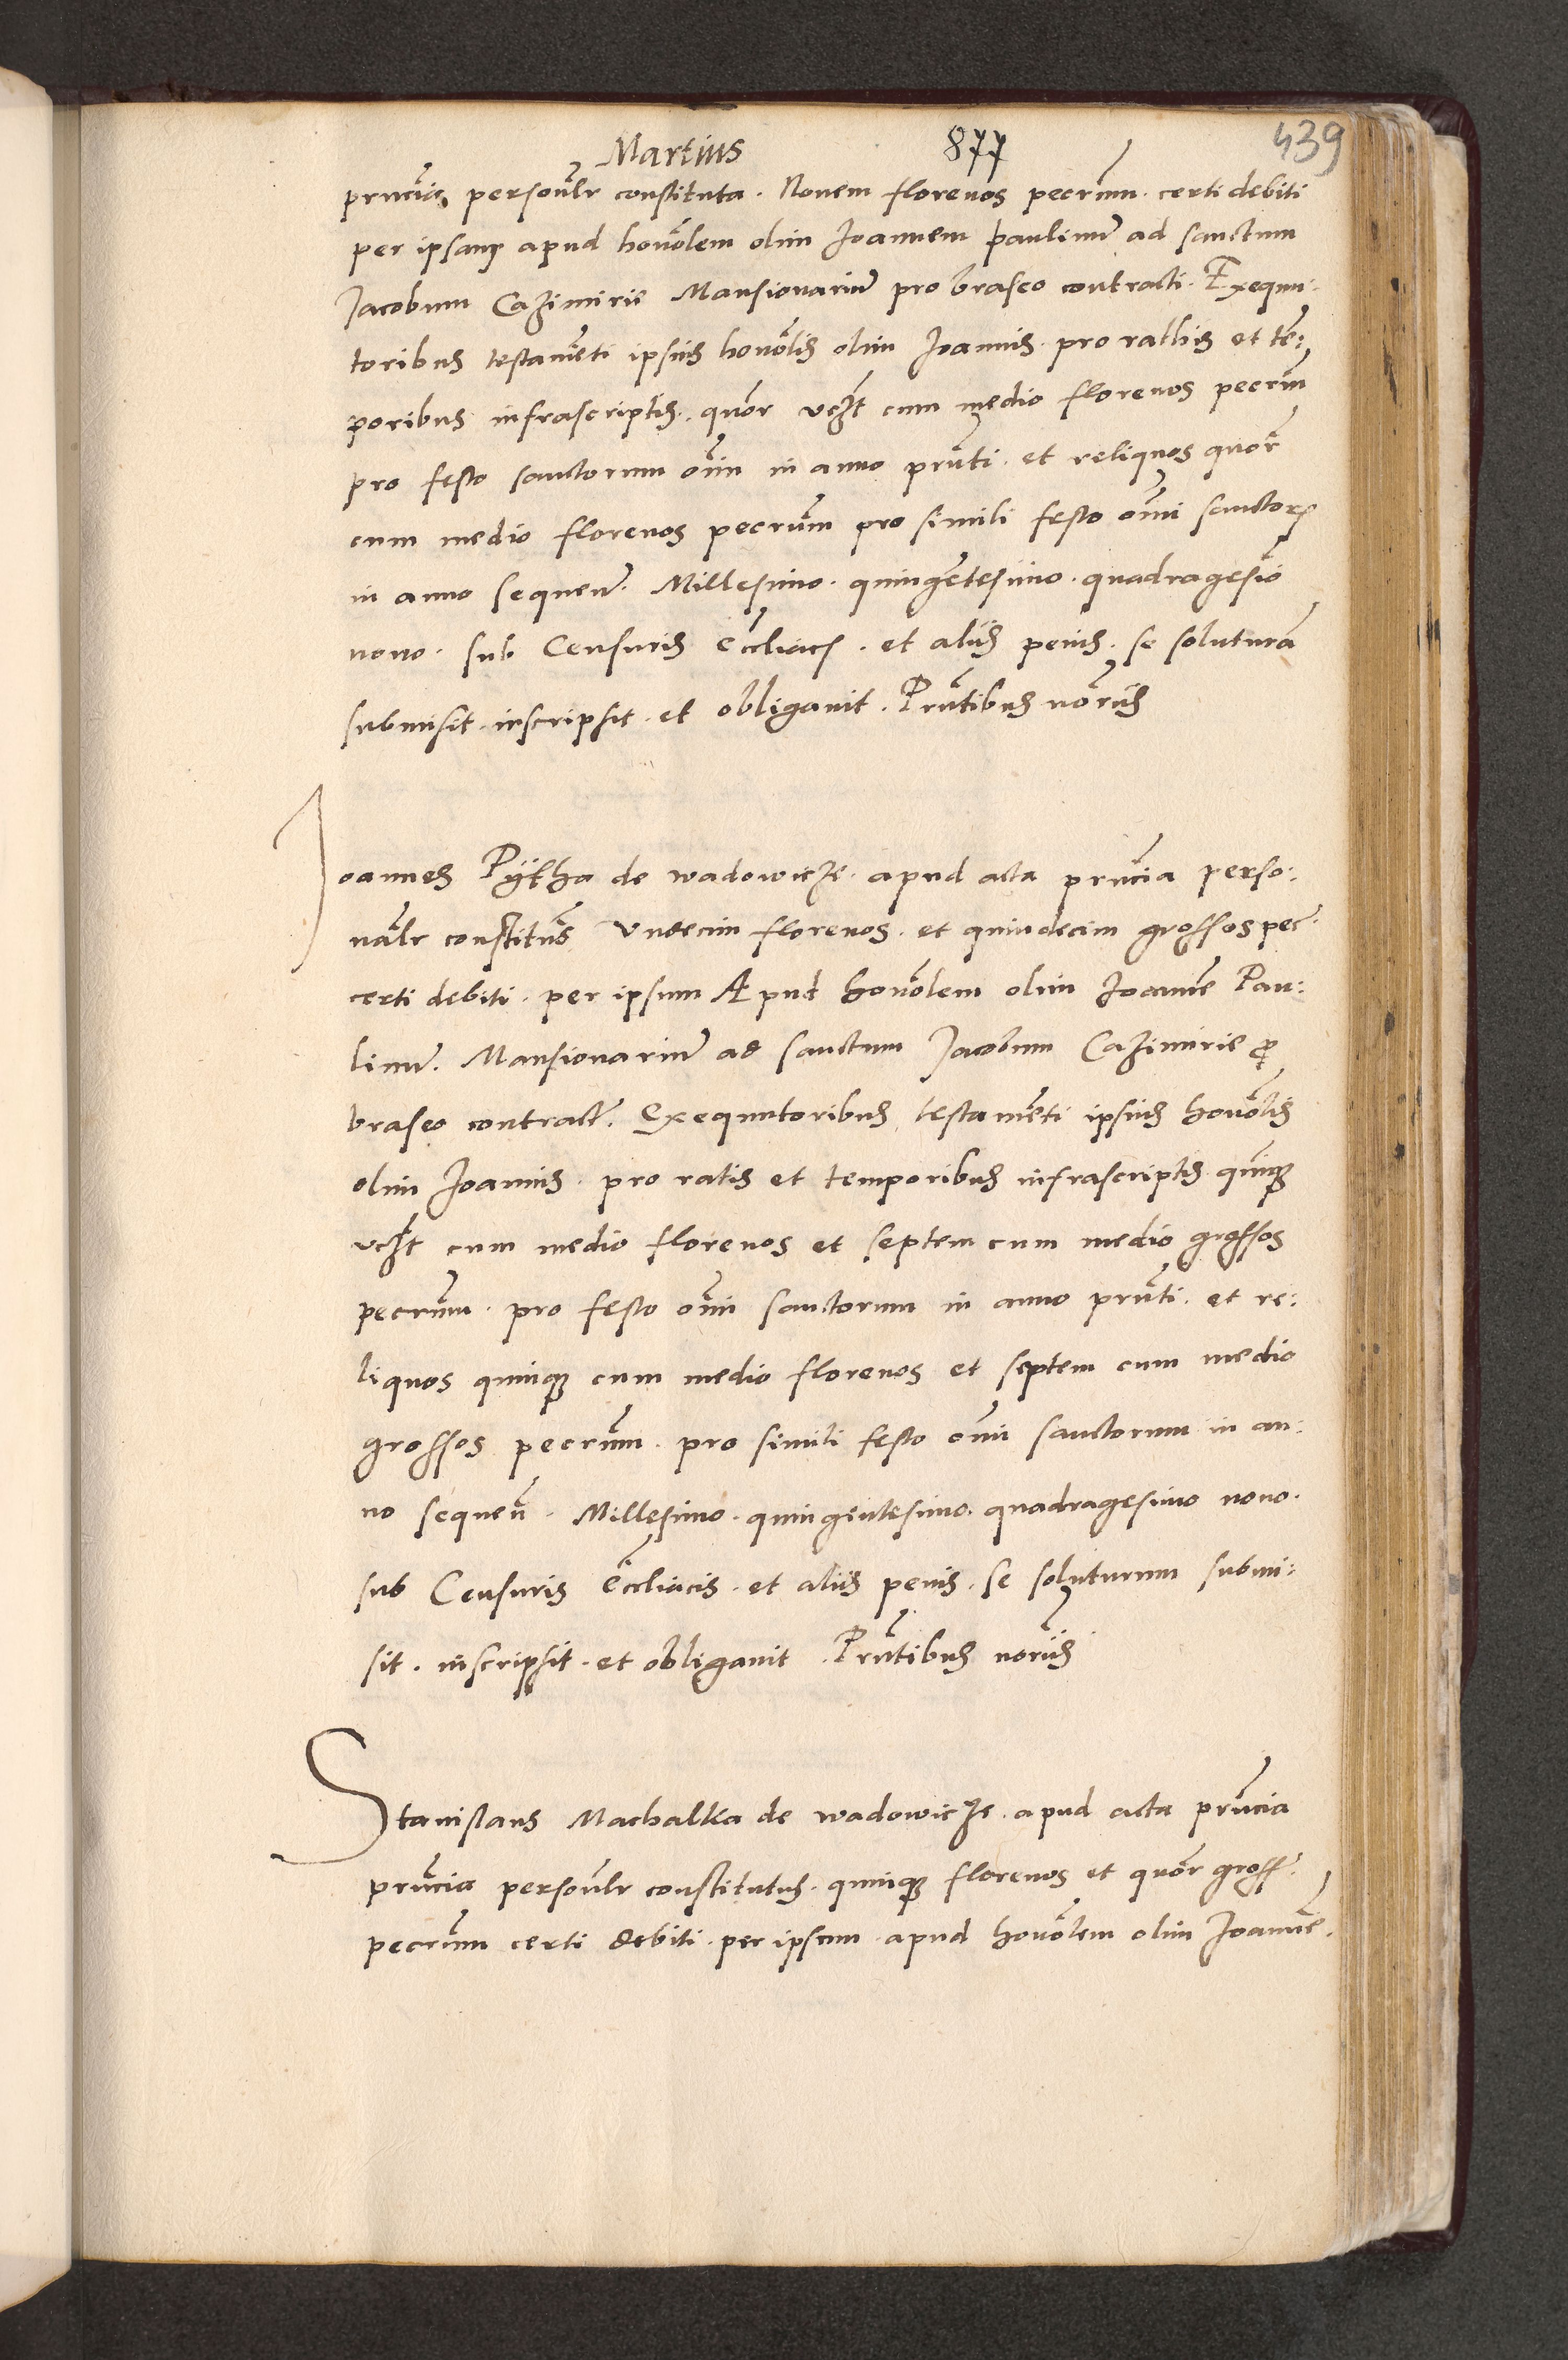 Martius 877 439
prncia personlr constituta . Nouem florenos pecrum . certi debiti
per ipsam apud honolem olim Joannem paulinum ad sanctum
Jacobum Cazimirie Mansionarium pro braseo contracti . Exequu:
toribus testamenti ipsius honolis olim Joannis . pro rathis et tem:
poribus infrascriptis . quor vczt cum medio florenos pecrum
pro festo sanctorum oim in anno prnti . et reliquos quor
cum medio florenos pecrum pro simili festo oim sanctor
in anno sequen . Millesimo . quingetesimo . quadragesio
nono . sub Censuris eccliacis . et aliis penis . se soluturam
submisit . inscripsit . et obligauit . Prntibus noriis
Joannes Pytha de wadowicze . apud acta prncia perso:
nalr constitus Vndecim florenos . et quindecim grossos pec
certi debiti . per ipsum Apud honolem olim Joanne Pau:
linum . Mansionarium ad sanctum Jacobum Cazimirie pro
braseo contract . Exequutoribus testameti ipsius honolis
olim Joannis . pro ratis et temporibus infrascriptis quinque
vczt cum medio florenos et septem cum medio grossos
pecrum . pro festo oim sanctorum in anno prnti . et re:
liquos quinque cum medio florenos et septem cum medio
grossos pecrum . pro simili festo oim sanctorum in an:
no sequen . Millesimo . quingentesimo . quadragesimo nono .
sub Censuris Eccliacis . et aliis penis . se soluturum submi:
sit . inscripsit . et obligauit . Prntibus noriis
Stanislaus Machalka de wadowicze . apud acta prncia
prncia personlr constitutus . quinque florenos et quor gross
pecrum certi debiti . per ipsum . apud honolem olim Joanne .